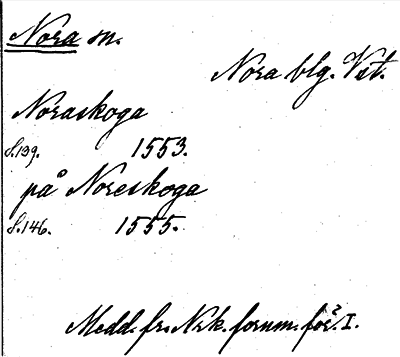 Nora sn.
Nora blg. Vst.
Noraskoga
S.139. 1553.
på Noreskoga
S.146. 1555.
Medd. fr. Nrk. fornm. för. I.